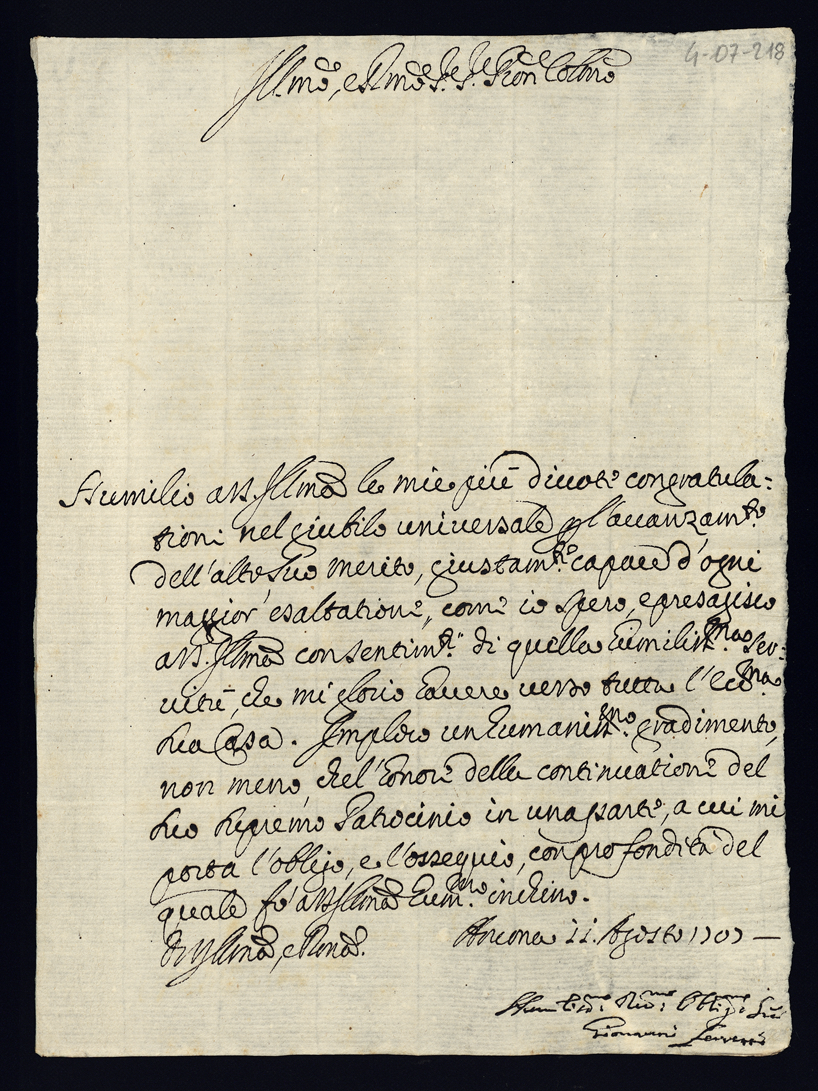 4-07-218
Ill.mo, e R.mo S.r S.r P.ron Col.mo
Humilio a V.S. Ill.ma le mie più divote congratula=
tioni nel giubilo universale p l'avanzam.to
dell'alto suo merito, giustam.te capace d'ogni
maggior esaltatione, come io spero, e presagisco
a V.S. Ill.ma consentim.to di quella humiliss.ma Ser=
vitù, che mi glorio havere verso tutta l'Ecc.ma
sua Casa. Imploro un humaniss.mo gradimento,
non meno, che l'honore della continuatione del
suo supremo Patrocinio in una parte, a cui mi
porta l'obligo, e l'ossequio, con profondità del
quale fò a V.S. Ill.ma hum.mo inchino.
Di V.S. Ill.ma, e R.ma Ancona 11. Agosto 1707 —
Humilis.mo Di.mo Oblig.mo
Giovanni